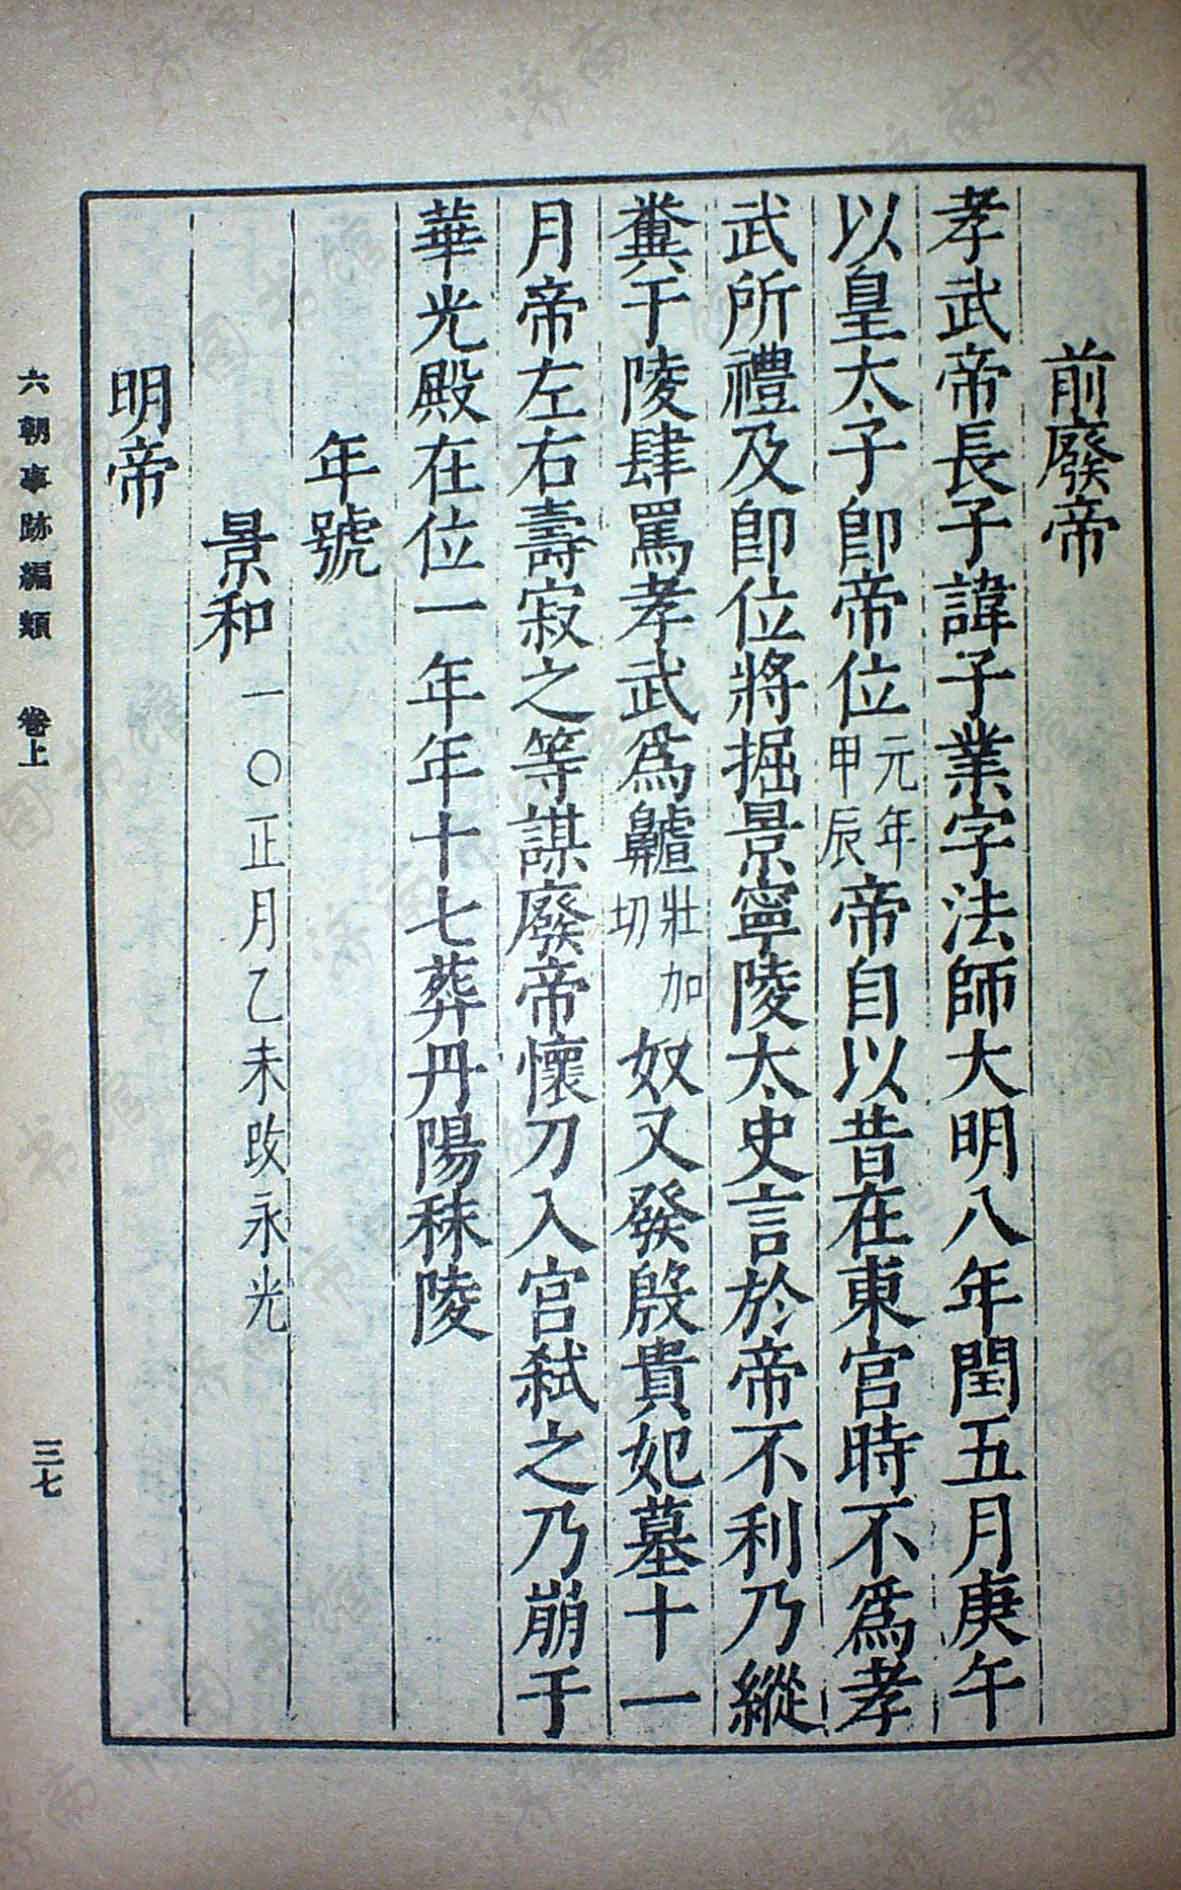 前廢帝
孝武帝長子諱子業字法師大明八年閏五月庚午
以皇太子卽帝位元年甲辰帝自以昔在東宮時不爲孝
武所禮及卽位將掘景寧陵太史言於帝不利乃縱
糞于陵肆罵孝武爲齇壯加切奴又發殷貴妃墓十一
月帝左右壽寂之等謀廢帝懷刀入宮弒之乃崩于
華光殿在位一年年十七葬丹陽秣陵
年號
景和一〇正月乙未改永光
明帝
六朝事跡編類 卷上
三七